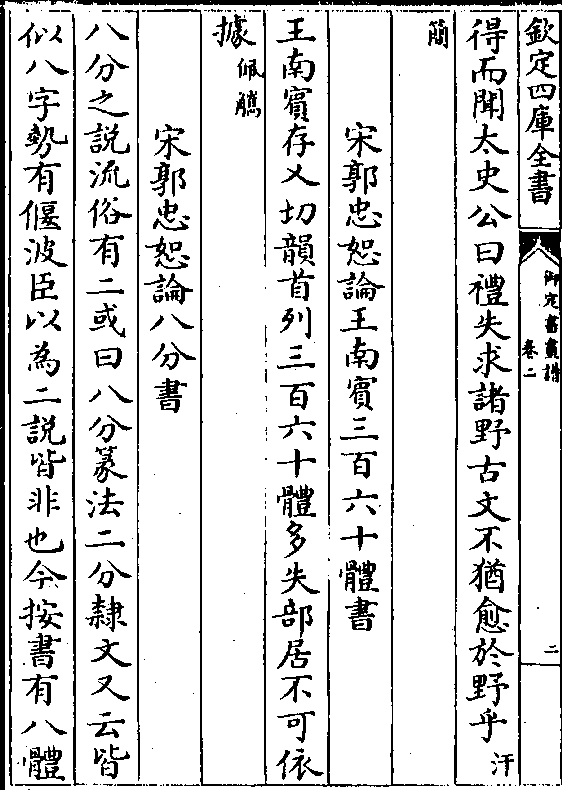 欽定四庫全書
御定書畫譜
卷二
二
得而聞太史公曰禮失求諸野古文不猶愈於野乎汗
簡
宋郭忠恕論王南賓三百六十體書
王南賓存乂切韻首列三百六十體多失部居不可依
據佩觿
宋郭忠恕論八分書
八分之説流俗有二或曰八分篆法二分隸文又云皆
似八字勢有偃波臣以為二説皆非也今按書有八體